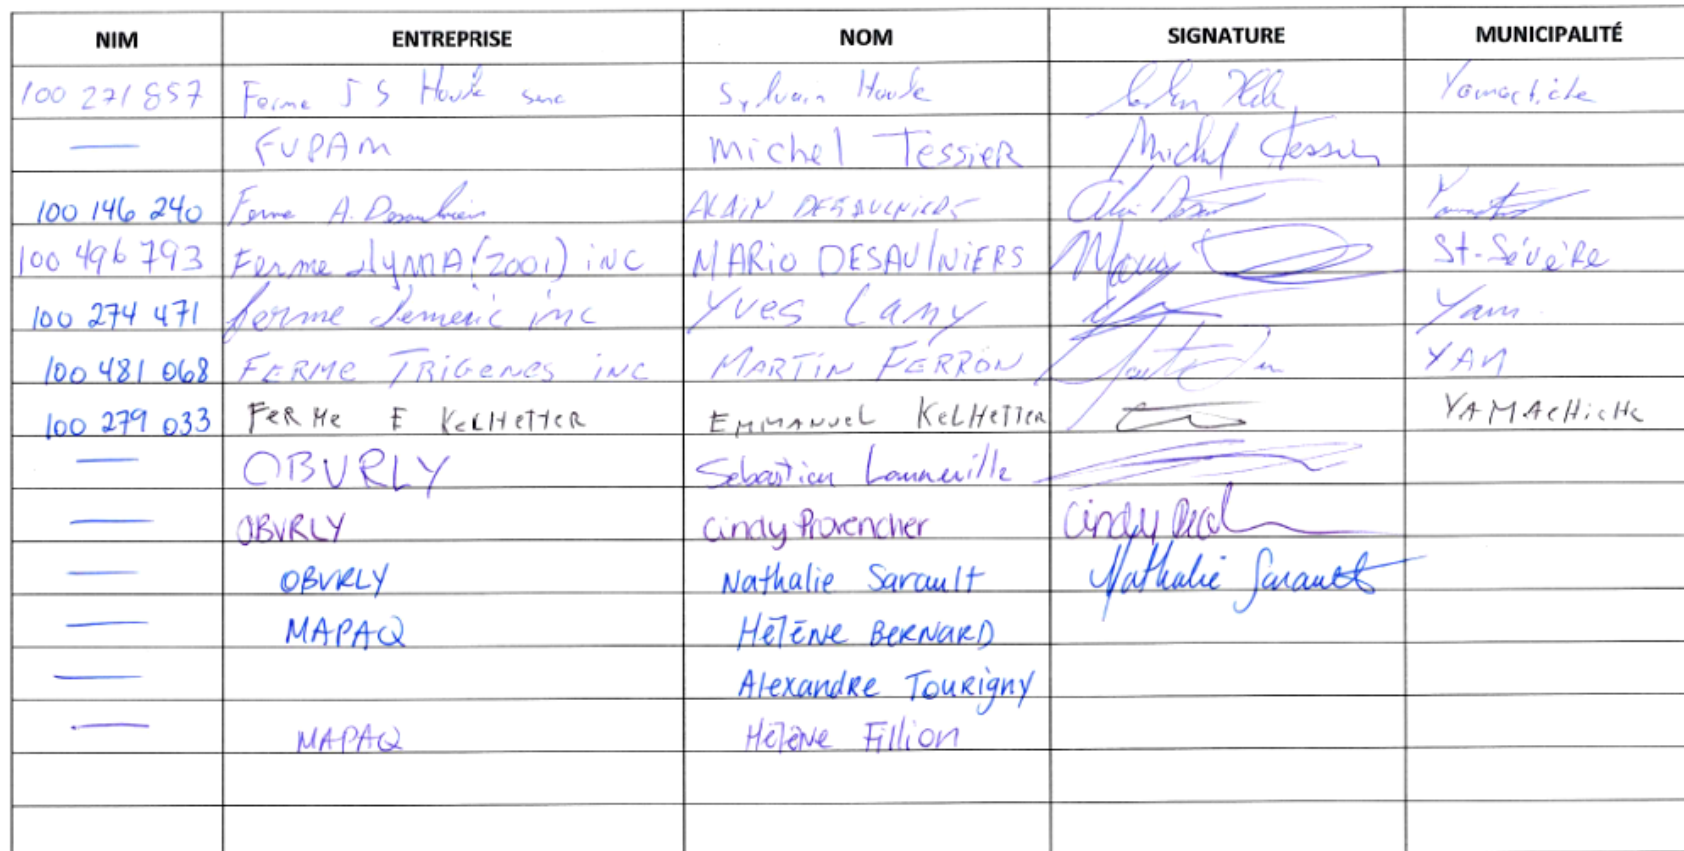 NIM ENTREPRISE NOM SIGNATURE MUNICIPALITÉ
100 271 857 Ferme J S Houle senc Sylvain Houle Yamachiche
— FUPAM Michel TessieR Michel Tessier
100 146 240 Ferme A. Desaulniers ALAIN DESAULNIERS
100 496 793 Ferme LyMA (2001) inc MARiO DESAULNiERS St-SévèRe
100 274 471 ferme Lemeric inc Yves Lamy Yam.
100 481 068 FERME TRiGENES iNC MARTiN FERRON YAM
100 279 033 FeRMe E KeLHeTTeR EMMANUeL KeLHeTTeR YAMACHicHe
— OBVRLY Sébastien Lanneville
— OBVRLY Cindy Provencher Cindy
— OBVRLY Nathalie Sarault Nathalie Sarault
— MAPAQ HéLèNe BeRNARD
— AlexandRe TouRigny
— MAPAQ Hélène Fillion